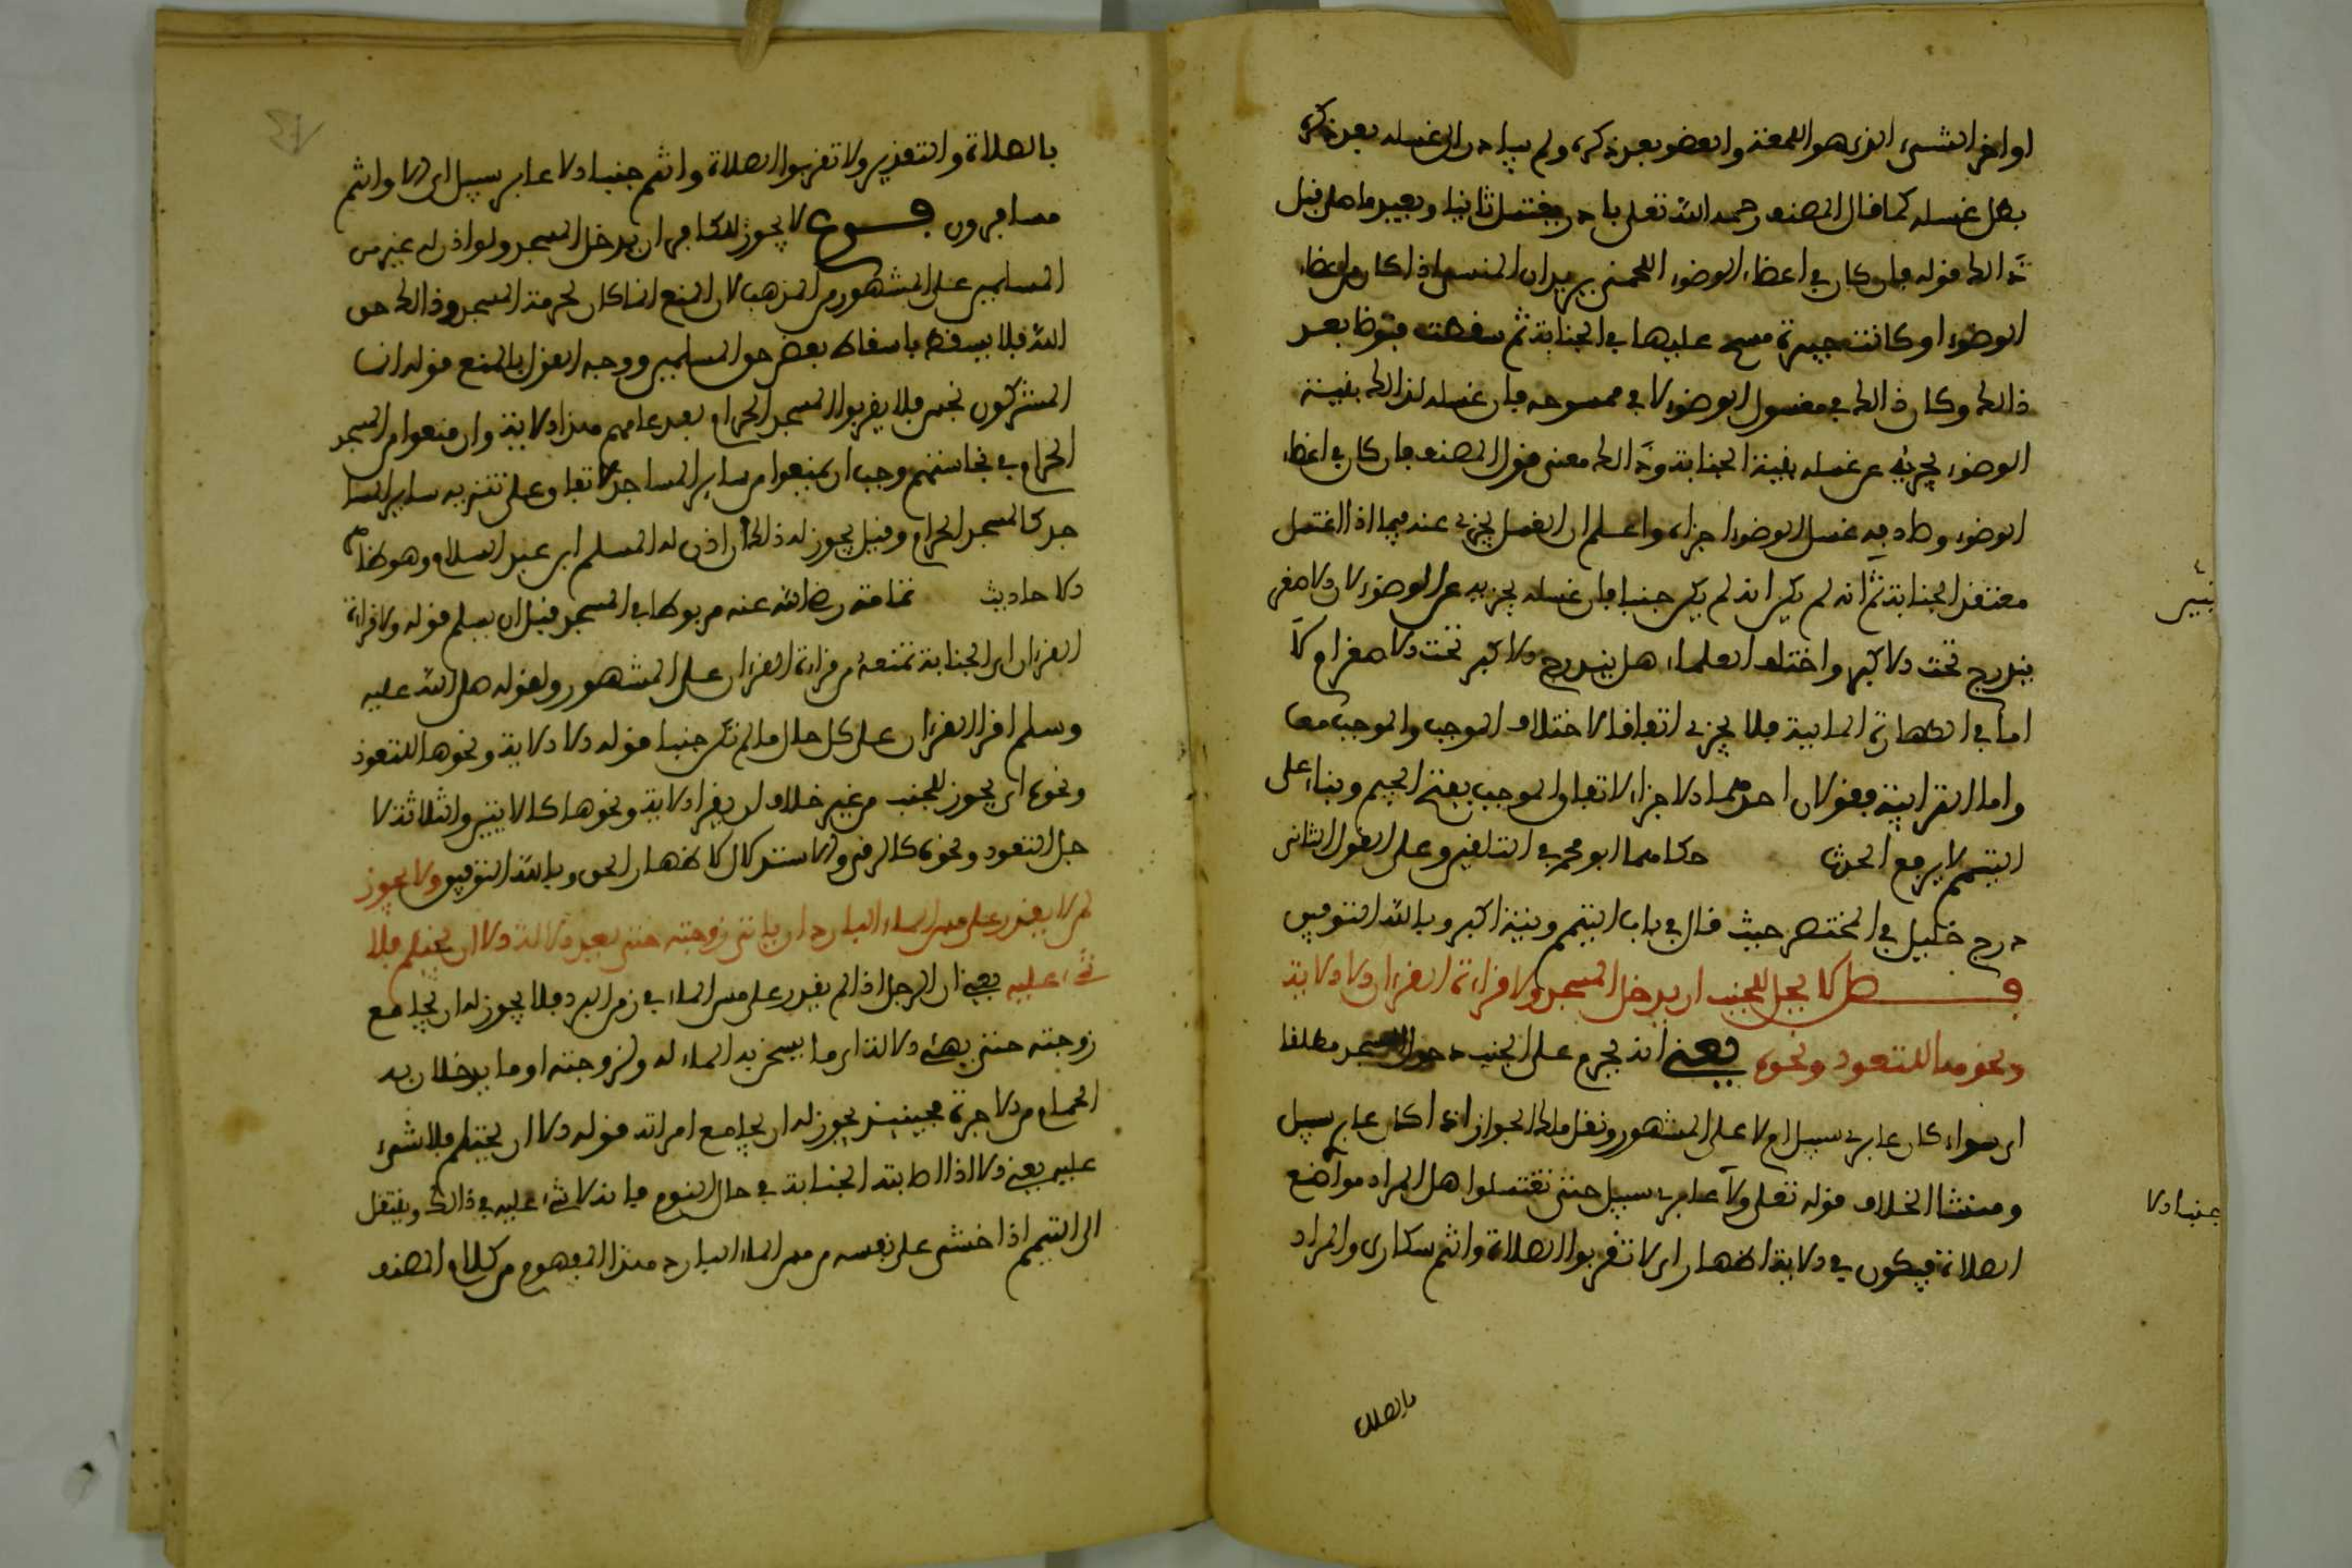 او اخر الشيء الذي هو اللمعة والعضو بعد ذكره ولم يبادر الى غسله بعد ذكره
بطل غسله كما قال المصنف رحمه الله تعلى بادر ويغتسل ثانيا ويعيد ما صلى قبل
ذالك قوله فان كان في اعضاء الوضوء اللمعة يريد ان المنسي اذا كان من اعضاء
الوضوء او كانت جبيرة مسح عليها في الجنابة ثم سقطت فتوضا بعد
ذالك وكان ذالك في مغسول الوضوء لا في ممسوحه فان غسله لذالك بنية
الوضوء يجزيه عن غسله بنية الجنابة وذالك معنى قول المصنف فان كان في اعضاء
الوضوء وصادفه غسل الوضوء اجزاه واعلم ان الغسل يجزي عنه فيما اذا اغتسل
معتقد الجنابة ثم انه لم يكن انه لم يكن جنبا فان غسله يجزيه عن الوضوء لان الاصغر
يندرج تحت الاكبر واختلف العلماء هل يندرج الاكبر تحت الاصغر ام لا
اما في الطهارة المايية فلا يجزي اتفاقا لاختلاف الموجب والموجب معا
واما الترابية فقولان احدهما الاجزاء لاتفاق الموجب بفتح الجيم وبناء على
التيمم لا يرفع الحدث حكاهما ابو محمد في التلقين وعلى القول الثاني
درج خليل في المختصر حيث قال في باب التيمم ونية اكبر وبالله التوفيق
فصل لا يحل للجنب ان يدخل المسجد ولا قراءة القرءان الا الاية
ونحوها للتعوذ ونحوه يعني انه يحرم على الجنب دخول المسجد مطلقا
اي سواء كان عابري سبيل ام لا على المشهور ونقل مالك الجواز اذا كان عابر سبيل
ومنشا الخلاف قوله تعلى ولا عابري سبيل حتى تغتسلوا هل المراد مواضع
الصلاة فيكون في الاية اضمار اي لا تقربوا الصلاة وانتم سكارى والمراد
جنبا الا
بالصلاة
بالصلاة والتقدير ولا تقربوا الصلاة وانتم جنبا الا عابر سبيل اي الا وانتم
مسافرون فروع لا يجوز للكافر ان يدخل المسجد ولو اذن له غير من
المسلمين على المشهور من المذهب لان المنع انما كان لحرمة المسجد وذالك حق
الله فلا يسقط باسقاط بعض حق المسلمين ووجه القول بالمنع قوله انما
المشركون نجس فلا يقربوا المسجد الحرام بعد عامهم هذا الاية وان منعوا من المسجد
الحرام في نجاستهم وجب ان يمنعوا من ساير المساجد لاتفاق على تنزيه ساير المسا
جد كالمسجد الحرام وقيل يجوز له ذالك ان اذن له المسلم ابن عبد السلام وهو ظاهر
الاحاديث ثمامة رضي الله عنه مربوطا في المسجد قبل ان يسلم قوله ولا قراءة
القرءان اي الجنابة تمنعه من قراءة القرءان على المشهور ولقوله صلى الله عليه
وسلم اقرا القرءان على كل حال ما لم تكن جنبا قوله الا الاية ونحوها للتعوذ
ونحوه اي يجوز للجنب من غير خلاف ان يقرا الاية ونحوها كالايتين والثلاثة لا
جل التعوذ ونحوه كالرقي والاستدلال لاظهار الحق وبالله التوفيق ولا يجوز
لمن لا يقدر على مس الماء البارد ان ياتي زوجته حتى يعد الالة الا ان يحتلم فلا
شيء عليه يعني ان الرجل اذا لم يقدر على مس الماء في زمن البرد فلا يجوز له ان يجامع
زوجته حتى يهيئ الالة اي ما يسخن به الماء له ولزوجته او ما يدخلان به
الحمام من الاجرة فحينيذ يجوز له ان يجامع امراته قوله الا ان يحتلم فلا شيء
عليه يعني الا اذا اصابته الجنابة في حال النوم فانه لا شيء عليه في ذالك وينتقل
الى التيمم اذا خشي على نفسه من مس الماء البارد هذا المفهوم من كلام المصنف